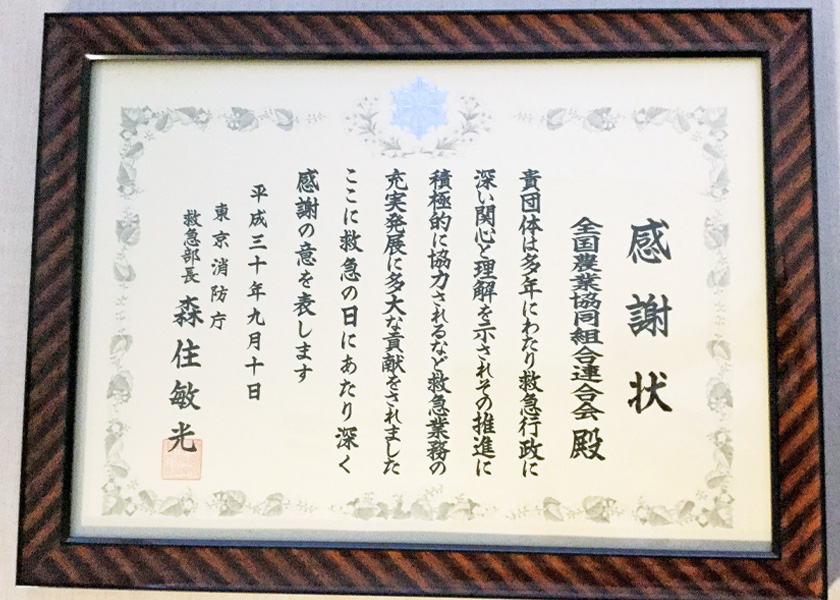 感謝状
全国農業協同組合連合会 殿
貴団体は多年にわたり救急行政に
深い関心と理解を示されその推進に
積極的に協力されるなど救急業務の
充実発展に多大な貢献をされました
ここに救急の日にあたり深く
感謝の意を表します
平成三十年九月十日
東京消防庁
救急部長 森住敏光